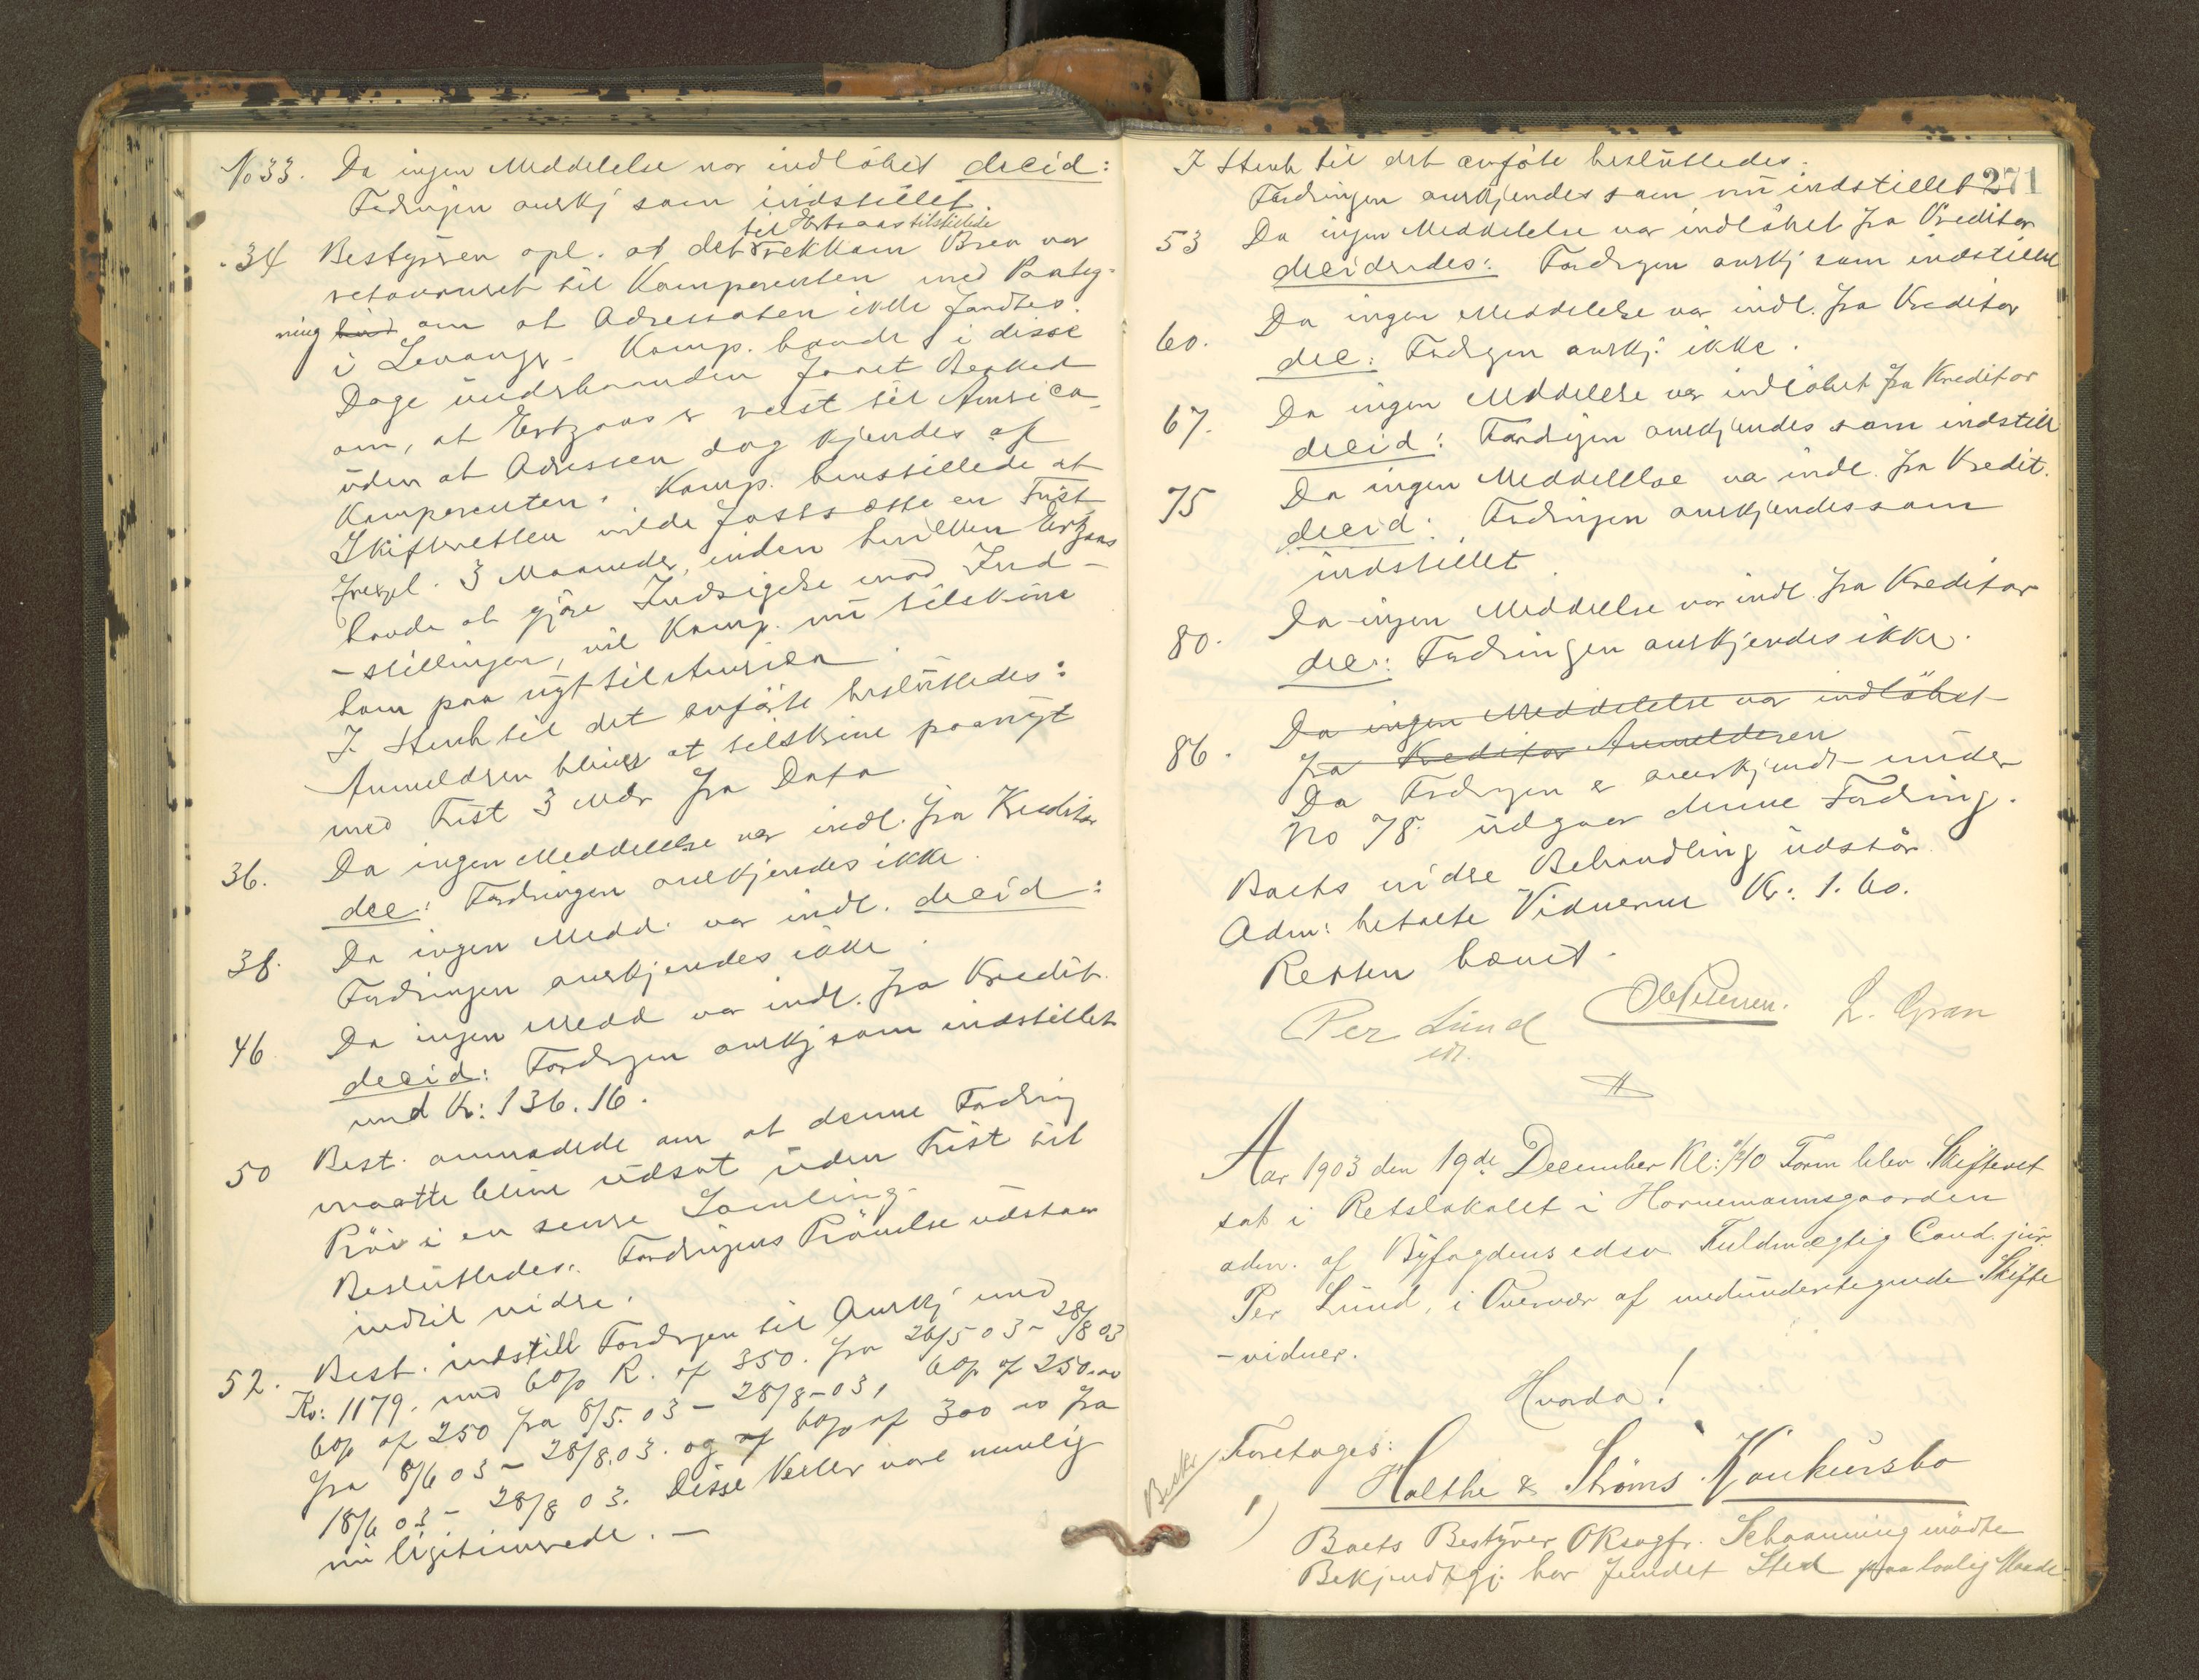 No 33. Da ingen Meddelelse var indløbet decid:
Fordringen anerkj som indstillet.
34 Bestyreren opl. at det til Ertzaas tilstillede rekkom Brev var
retourneret til Komparenten med Paateg-
ning om at Adressaten ikke fandtes
i Levanger. Komp. havde i disse
Dage underhaanden faaet Besked
om, at Ertzaas er reist til America
uden at Adressen dog kjendes af
Komparenten. Komp. henstillede at
Skifteretten vilde fastsætte en Frist
3 Maaneder, inden hvilken Ertzaas
havde at gjøre Indsigelse mod Ind-
-stillingen, vil Komp. nu tilskrive
ham paa nyt til America.
I Henh til det anførte besluttedes:
Anmelderen bliver at tilskrive paanyt
med Frist 3 Mdr fra Dato
36. Da ingen Meddelelse var indl. fra Kreditor
dec: Fordringen anerkjendes ikke.
38. Da ingen Medd. var indl. decid:
Fordringen anerkjendes ikke.
46 Da ingen Medd var indl. fra Kredit.
decid: Fordrgen anerkj som indstillet
med Kr: 136.16.
50 Best. anmodede om at denne Fordring
maatte blive udsat uden Frist til
Prøv i en senere Samling.
Besluttedes: Fordringens Prøvelse udstaar
indtil vidre.
52. Best. indstill Fordrgen til Anerkj med
Kr: 1179. med 6 o/o R. af 350. fra 26/5 03 - 28/8 03
6 o/o af 250 fra 8/5. 03 - 28/8 - 03, 6 o/o af 250.00
fra 8/6 03 - 28/8. 03. og af 6 o/o af 300 00 fra
18/6 03 - 28/8 03. Disse Veksler vare nemlig
nu legitimerede. -
271
I Henh til det anførte besluttedes:
Fordringen anerkjendes som nu indstillet
53 Da ingen Meddelelse var indløbet fra Kreditor
decideredes: Fordrgen anerkj som indstillet
60. Da ingen Meddelelse var indl. fra Kreditor
dec: Fordrgen anerkj. ikke.
67. Da ingen Meddelelse var indløbet fra Kreditor
decid: Fordrgen anerkjendes som indstill
75 Da ingen Meddelelse var indl. fra Kredit.
decid: Fordringen anerkjendes som
indstillet.
80. Da ingen Meddelelse var indl. fra Kreditor
dec: Fordringen anerkjendes ikke.
86. Da ingen Meddelelse var indløbet
fra Kreditor Anmelderen
Da Fordrgen er anerkjendt under
No 78. udgaar denne Fordring.
Boets vidre Behandling udstår
Adm: betalte Vidnerne Kr: 1.60.
Retten hævet.
Per Lund
L. Gran
Aar 1903 den 19de December Kl: 10 Form blev Skifteret
sat i Retslokalet i Hornemannsgaarden
adm. af Byfogdens edsv. Fuldmægtig Cand. jur.
Per Lund, i Overvær af medundertegnede Skifte
-vidner.
Hvorda!
Foretoges:
1) Holthe & Strøms Konkursbo
Boets Bestyrer OKsagfr. Schaanning mødte
Bekjendtgj. har fundet Sted paa lovlig Maade.